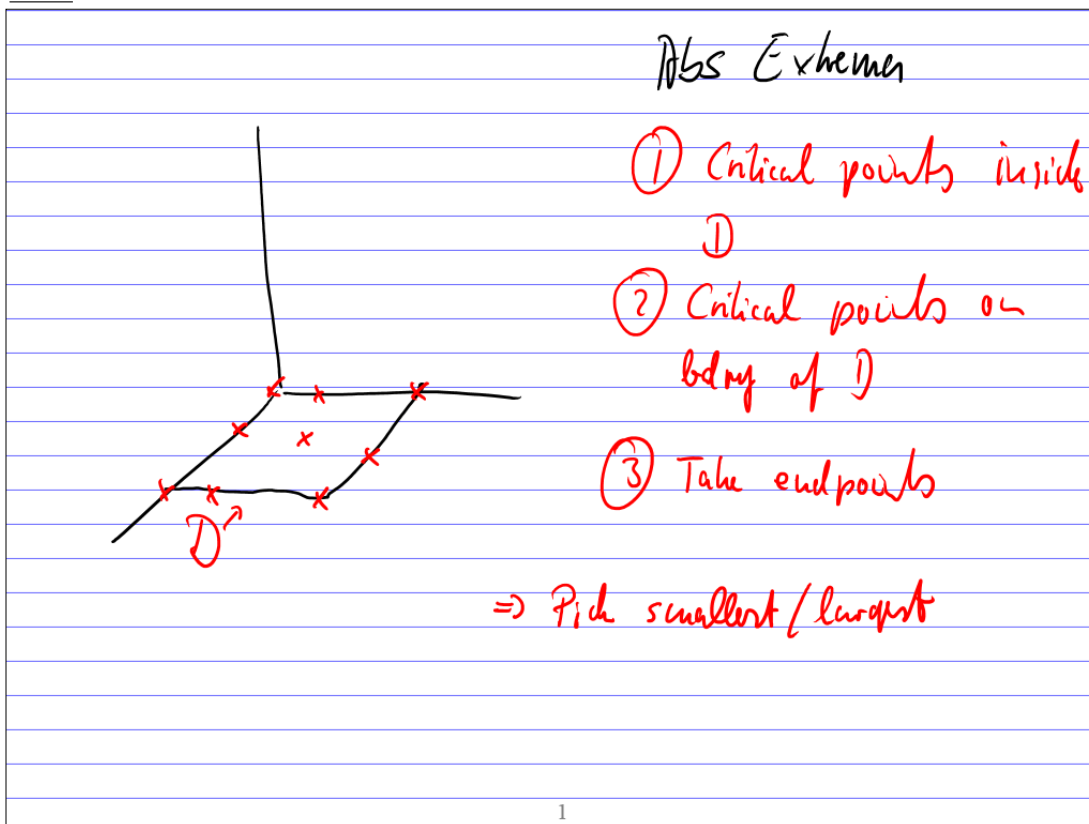 Abs Extrema
① Critical points inside
D
② Critical points on
bdry of D
③ Take endpoints
D
⇒ Pick smallest/largest
1